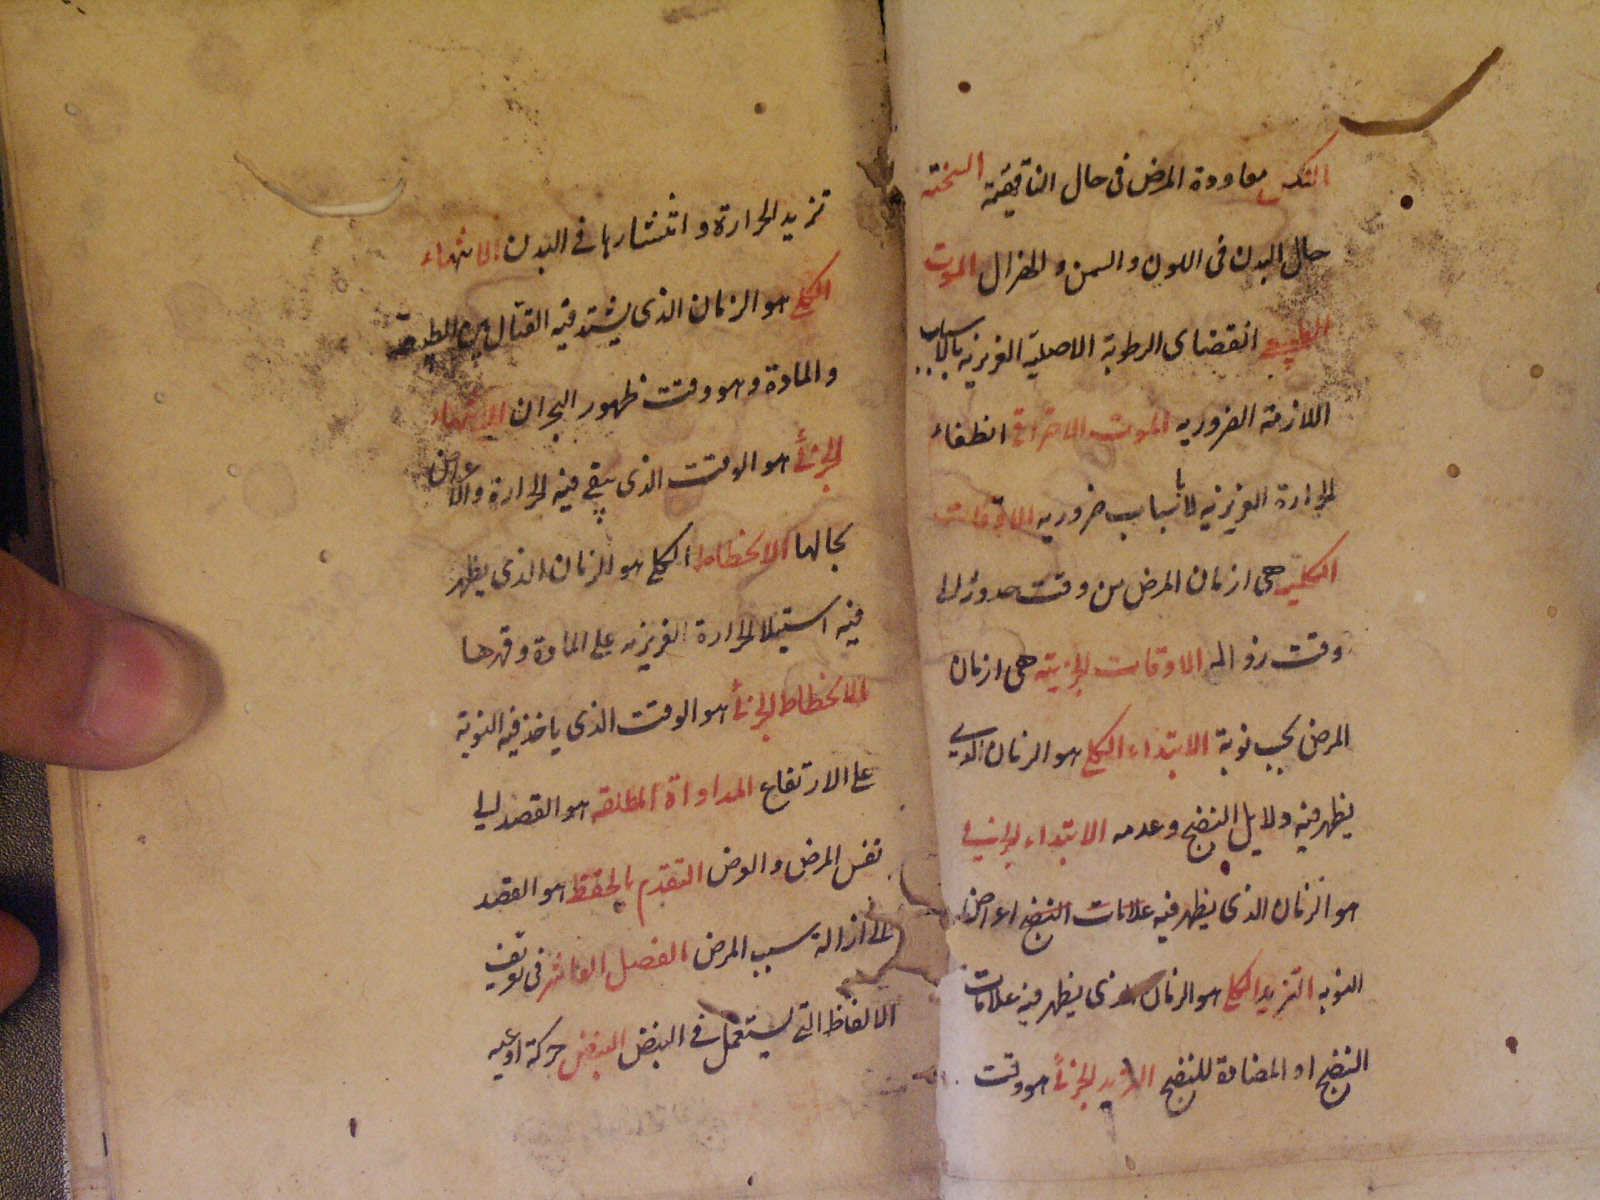 النكس معاودة المرض فى حال الناقهية السخنه
حال البدن فى اللون والسمن والهزال الموت
الطبيعى انقضاى الرطوبة الاصلية الغريزيه بالاسباب
اللازمة الضروريه الموت الاخترافى انطفاء
الحرارة الغريزيه لاسباب ضروريه الاوقات
الكليه هى ازمان المرض من وقت حدوثه الى
وقت زواله الاوقات الجزئيه هى ازمان
المرض بحسب نوبة الابتداء الكلى هو الزمان الذى
يظهر فيه دلايل النضج وعدمه الابتداء الجزئى
هو الزمان الذى يظهر فيه علامات النضج اعراض
النوبه التزيد الكلى هو الزمان الذى يظهر فيه علامات
النضج او المضادة للنضج التزيد الجزئى هو وقت
تزيد الحرارة وانتشارها فى البدن الانتهاء
الكلى هو الزمان الذى يشتد فيه القتال بين الطبيعة
والمادة وهو وقت ظهور البحران الانتهاء
الجزئى هو الوقت الذى يبقى فيه الحرارة والاعراض
بحالها الانحطاط الكلى هو الزمان الذى يظهر
فيه استيلا الحرارة الغريزيه على المادة وقهرها
الانحطاط الجزئى هو الوقت الذى ياخذ فيه النوبة
على الارتفاع المداواة المطلقه هو القصد الى
نفس المرض والعرض التقدم بالحفظ هو القصد
الى ازالة سبب المرض الفصل العاشر فى تعريف
الالفاظ التى يستعمل فى النبض النبض حركة اوعيه